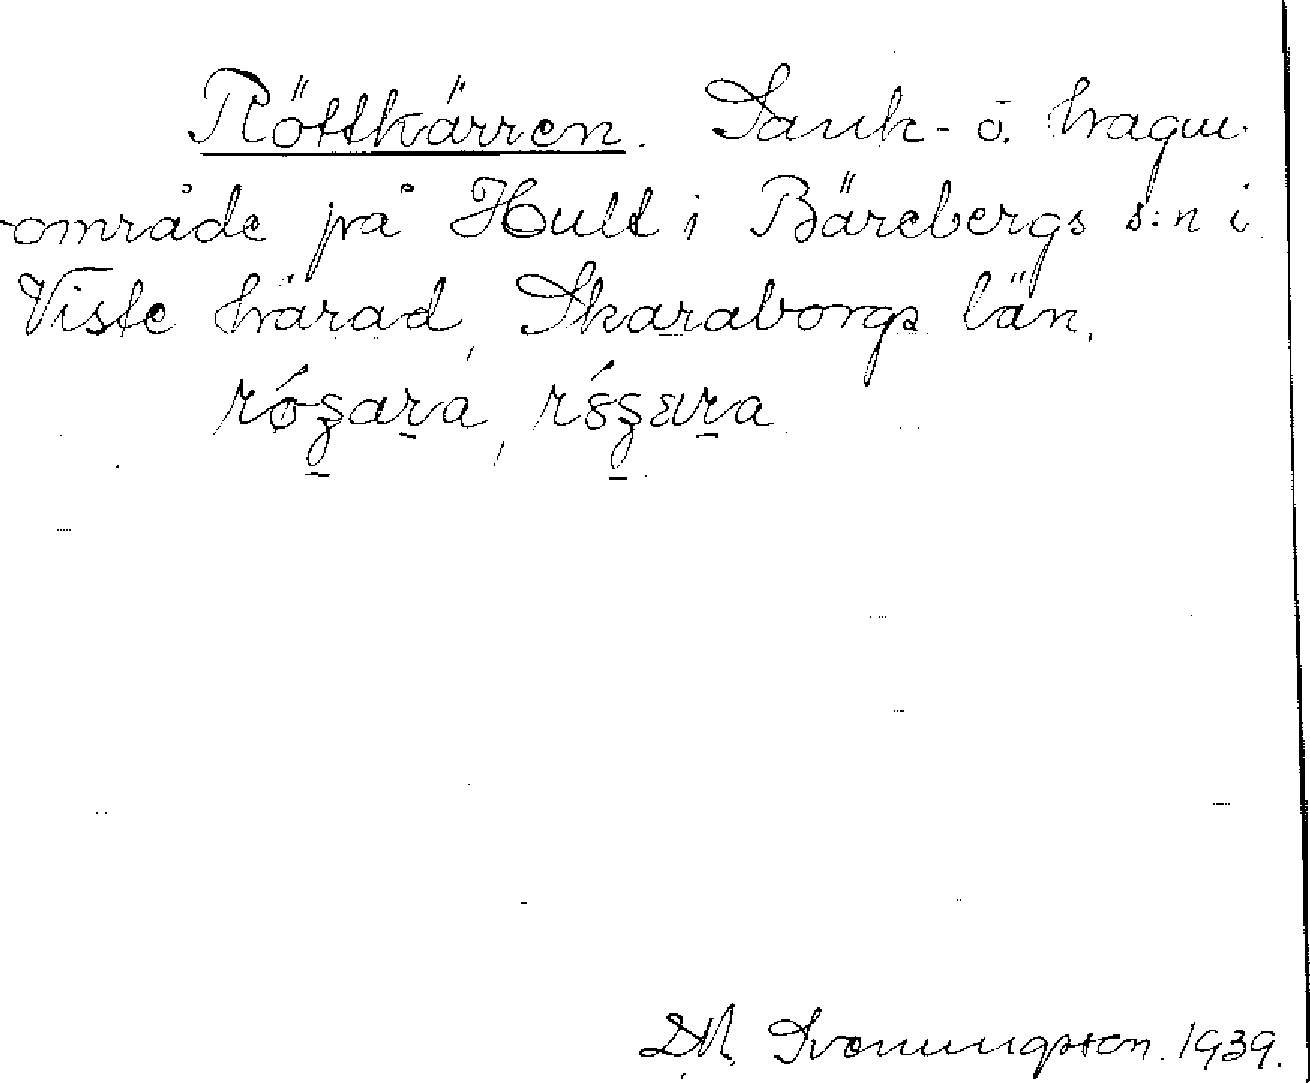 Röttkärren. Sank- o. hagm.
-område på Hult i Bärebergs s:n i
Viste härad, Skaraborgs län.
Svenningsson. 1939.